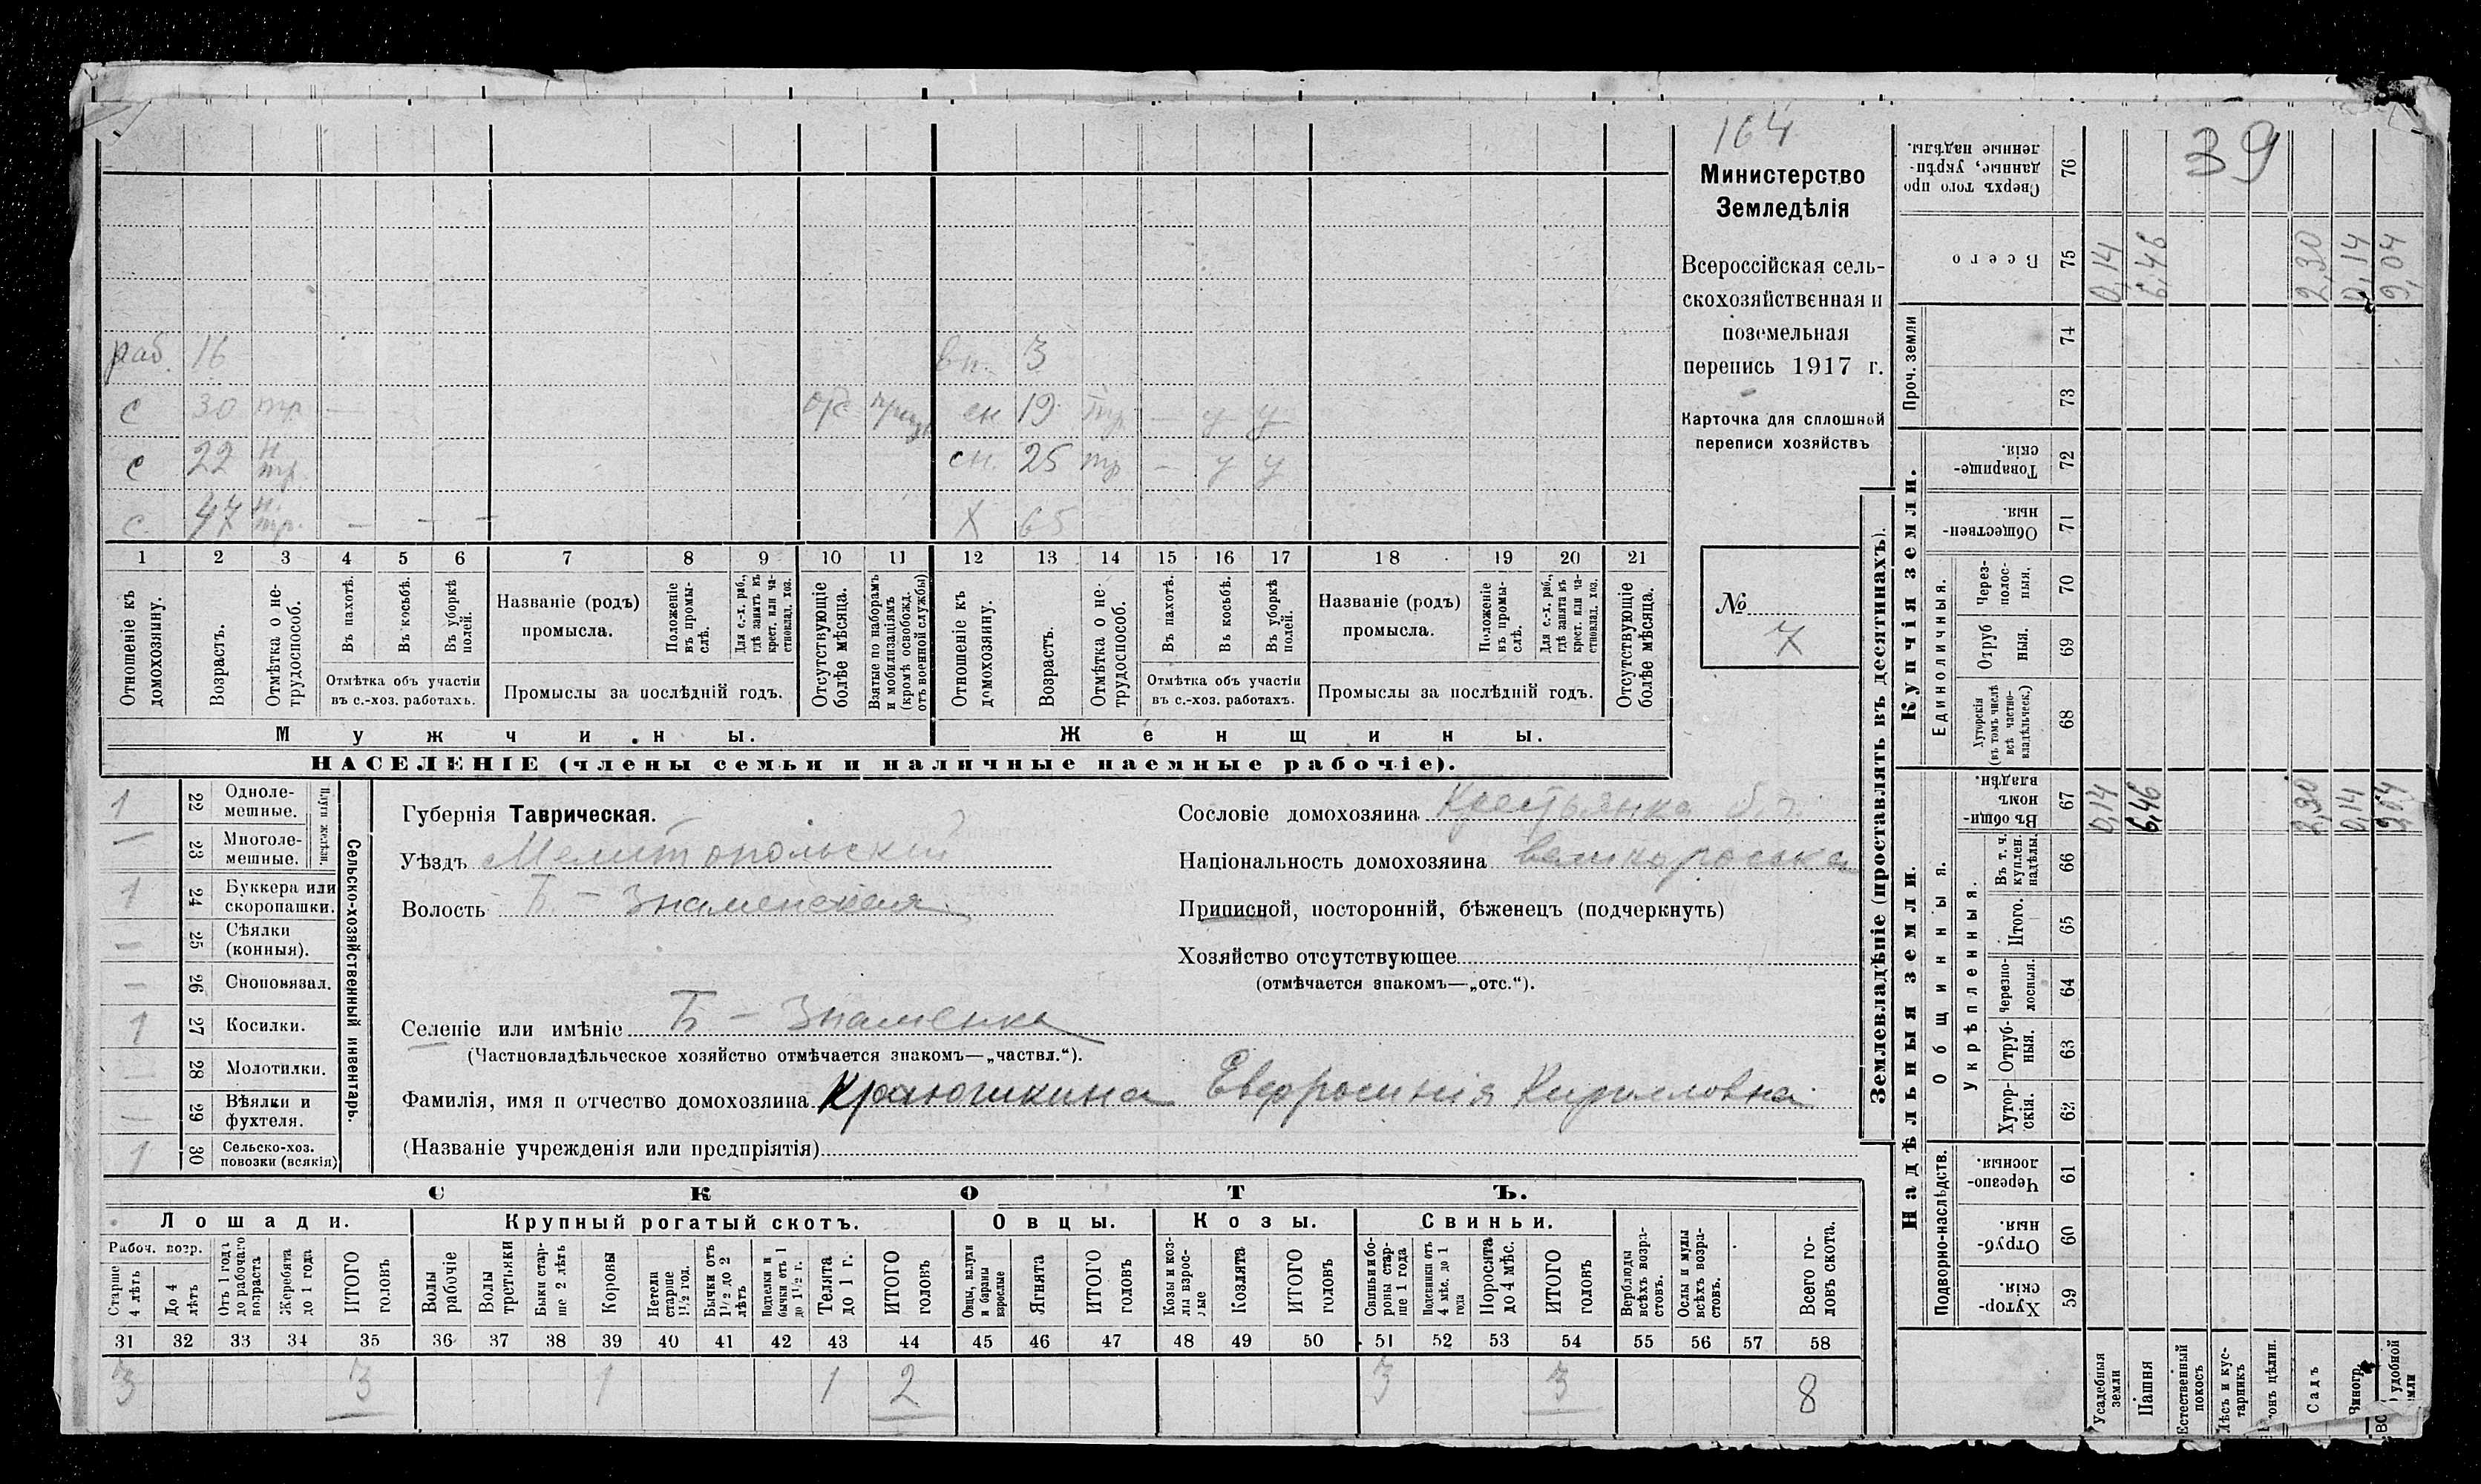 164
39
Министерство
Земледѣлія
Всероссійская сель-
скохозяйственная и
поземельная
перепись 1917 г.
Карточка для сплошной
переписи хозяйствъ
№
7
раб. 16
вн. 3
с 30 тр —
сн 19 тр — у у
с 22 н тр.
сн. 25 тр — у у
с 47 н. тр. — — —
Х 65
1 2 3 4 5 6 7 8 9 10 11 12 13 14 15 16 17 18 19 20 21
Отношеніе къ домохозяину.
Возрастъ.
Отмѣтка о не-трудоспособ.
Въ пахотѣ.
Въ косьбѣ.
Въ уборкѣ полей.
Отмѣтка объ участіи
въ с.-хоз. работахъ.
Названіе (родъ)
промысла.
Положеніе въ промы-слѣ.
Для с.-х. раб., гдѣ занятъ къ крест. или ча-стновлад. хоз.
Промыслы за послѣдній годъ.
Отсутствующіе болѣе мѣсяца.
Взятые по наборамъ и мобилизаціямъ (кромѣ освобожд. отъ военной службы)
Отношеніе къ домохозяину.
Возрастъ.
Отмѣтка о не-трудоспособ.
Въ пахотѣ.
Въ косьбѣ.
Въ уборкѣ полей.
Отмѣтка объ участіи
въ с.-хоз. работахъ.
Названіе (родъ)
промысла.
Положеніе въ промы-слѣ.
Для с.-х. раб., гдѣ занята къ крест. или ча-стновлад. хоз.
Промыслы за послѣдній годъ.
Отсутствующіе болѣе мѣсяца.
Мужчины.
Женщины.
НАСЕЛЕНІЕ (члены семьи и наличные наемные рабочіе).
Сельско-хозяйственный инвентарь.
Плуги желѣзн.
1 22 Одноле-мешные.
— 23 Многоле-мешные.
1 24 Буккера или скоропашки.
— 25 Сѣялки (конныя).
— 26 Сноповязал.
1 27 Косилки.
— 28 Молотилки.
— 29 Вѣялки и фухтеля.
1 30 Сельско-хоз. повозки (всякія)
Губернія Таврическая.
Уѣздъ Мелитопольскій
Волость Б. – Знаменская
Сословіе домохозяина Крестьянка
Національность домохозяина великороська
Приписной, посторонній, бѣженецъ (подчеркнуть)
Хозяйство отсутствующее
(отмѣчается знакомъ—„отс.“).
Селеніе или имѣніе Б – Знаменка
(Частновладѣльческое хозяйство отмѣчается знакомъ—„частвл.“).
Фамилія, имя и отчество домохозяина Краюшкина Евфросинія Кирилловна
(Названіе учрежденія или предпріятія)
СКОТЪ.
Лошади. Крупный рогатый скотъ. Овцы. Козы. Свиньи.
Рабоч. возр.
Старше 4 лѣтъ
До 4 лѣтъ
Отъ 1 года до рабочаго возраста
Жеребята до 1 года
ИТОГО головъ
Волы рабочіе
Волы третьяки
Быки стар-ше 2 лѣтъ
Коровы
Нетели старше 1½ год.
Бычки отъ 1½ до 2 лѣтъ
Подтелки и бычки отъ 1 до 1½ г.
Телята до 1 г.
ИТОГО головъ
Овцы, валухи и бараны взрослые
Ягнята
ИТОГО головъ
Козы и коз-лы взрос-лые
Козлята
ИТОГО головъ
Свиньи бо-ровы стар-ше 1 года
Подсвинки отъ 4 мѣс. до 1 года
Поросята до 4 мѣс.
ИТОГО головъ
Верблюды всѣхъ возра-стовъ.
Ослы и мулы всѣхъ возра-стовъ.
Всего го-ловъ скота.
31 32 33 34 35 36 37 38 39 40 41 42 43 44 45 46 47 48 49 50 51 52 53 54 55 56 57 58
3 3 1 1 2 3 3 8
Землевладѣніе (проставлять въ десятинахъ).
Купчія земли.
Надѣльныя земли.
Сверхъ того про данные, укрѣп-ленные надѣлы. 76
Всего 75 0,14 6,46 2,30 0,14 9,04
Проч. земли 74
73
Товарище-скія. 72
Обществен-ныя. 71
Единоличныя.
Через-полос-ныя. 70
Отруб ныя. 69
Хуторскія (въ томъ числѣ всѣ частно-владѣльческ.) 68
Общинныя.
Въ общи-номъ владѣн. 67 0,14 6,46 2,30 0,14 9,04
Укрѣпленныя.
Въ т. ч. куплен. надѣлы. 66
Итого. 65
Черезпо-лосныя. 64
Отруб-ныя. 63
Хутор-скія. 62
Подворно-наслѣдств.
Черезпо-лосныя. 61
Отруб-ныя. 60
Хутор-скія. 59
Усадебныя земли
Пашня
Естественный покосъ
Лѣсъ и кус-тарникъ
Садъ
Виногр.
удобной